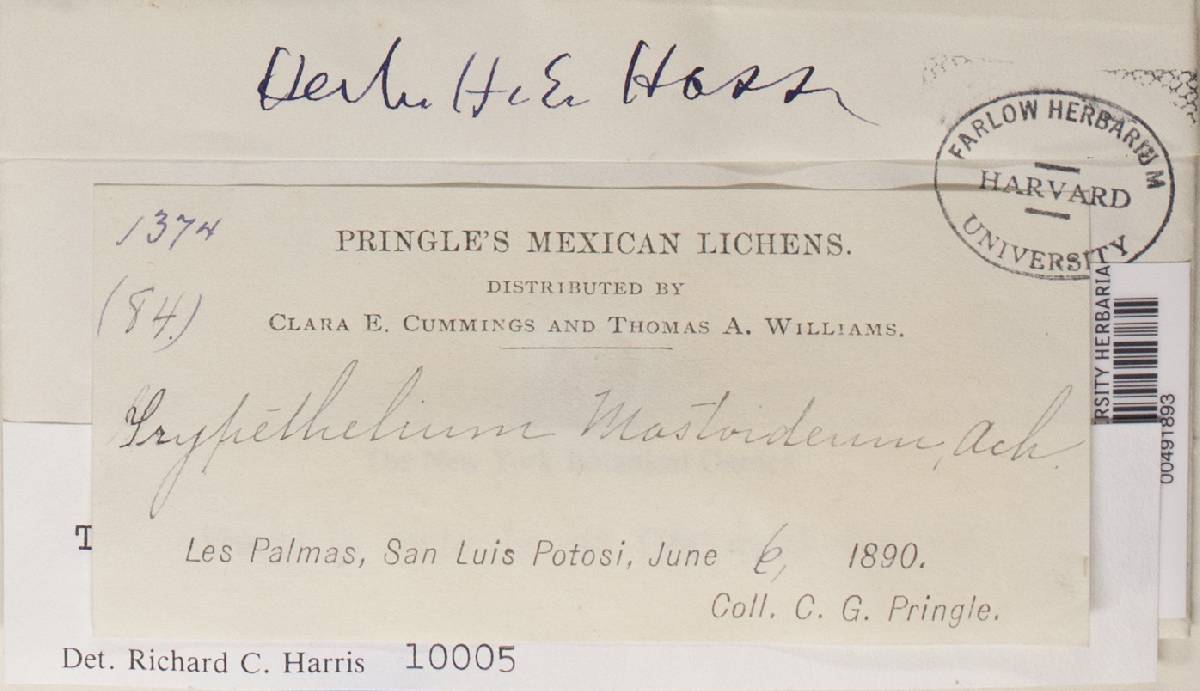 Herb. H. E. Hasse
FARLOW HERBARIUM
HARVARD
UNIVERSITY
1374
PRINGLE'S MEXICAN LICHENS.
DISTRIBUTED BY
(84.)
CLARA E. CUMMINGS AND THOMAS A. WILLIAMS.
RSITY HERBARIA
00491893
Trypethelium Mastoideum, Ach.
T
Les Palmas, San Luis Potosi, June 6, 1890.
Coll. C. G. Pringle.
Det. Richard C. Harris 10005